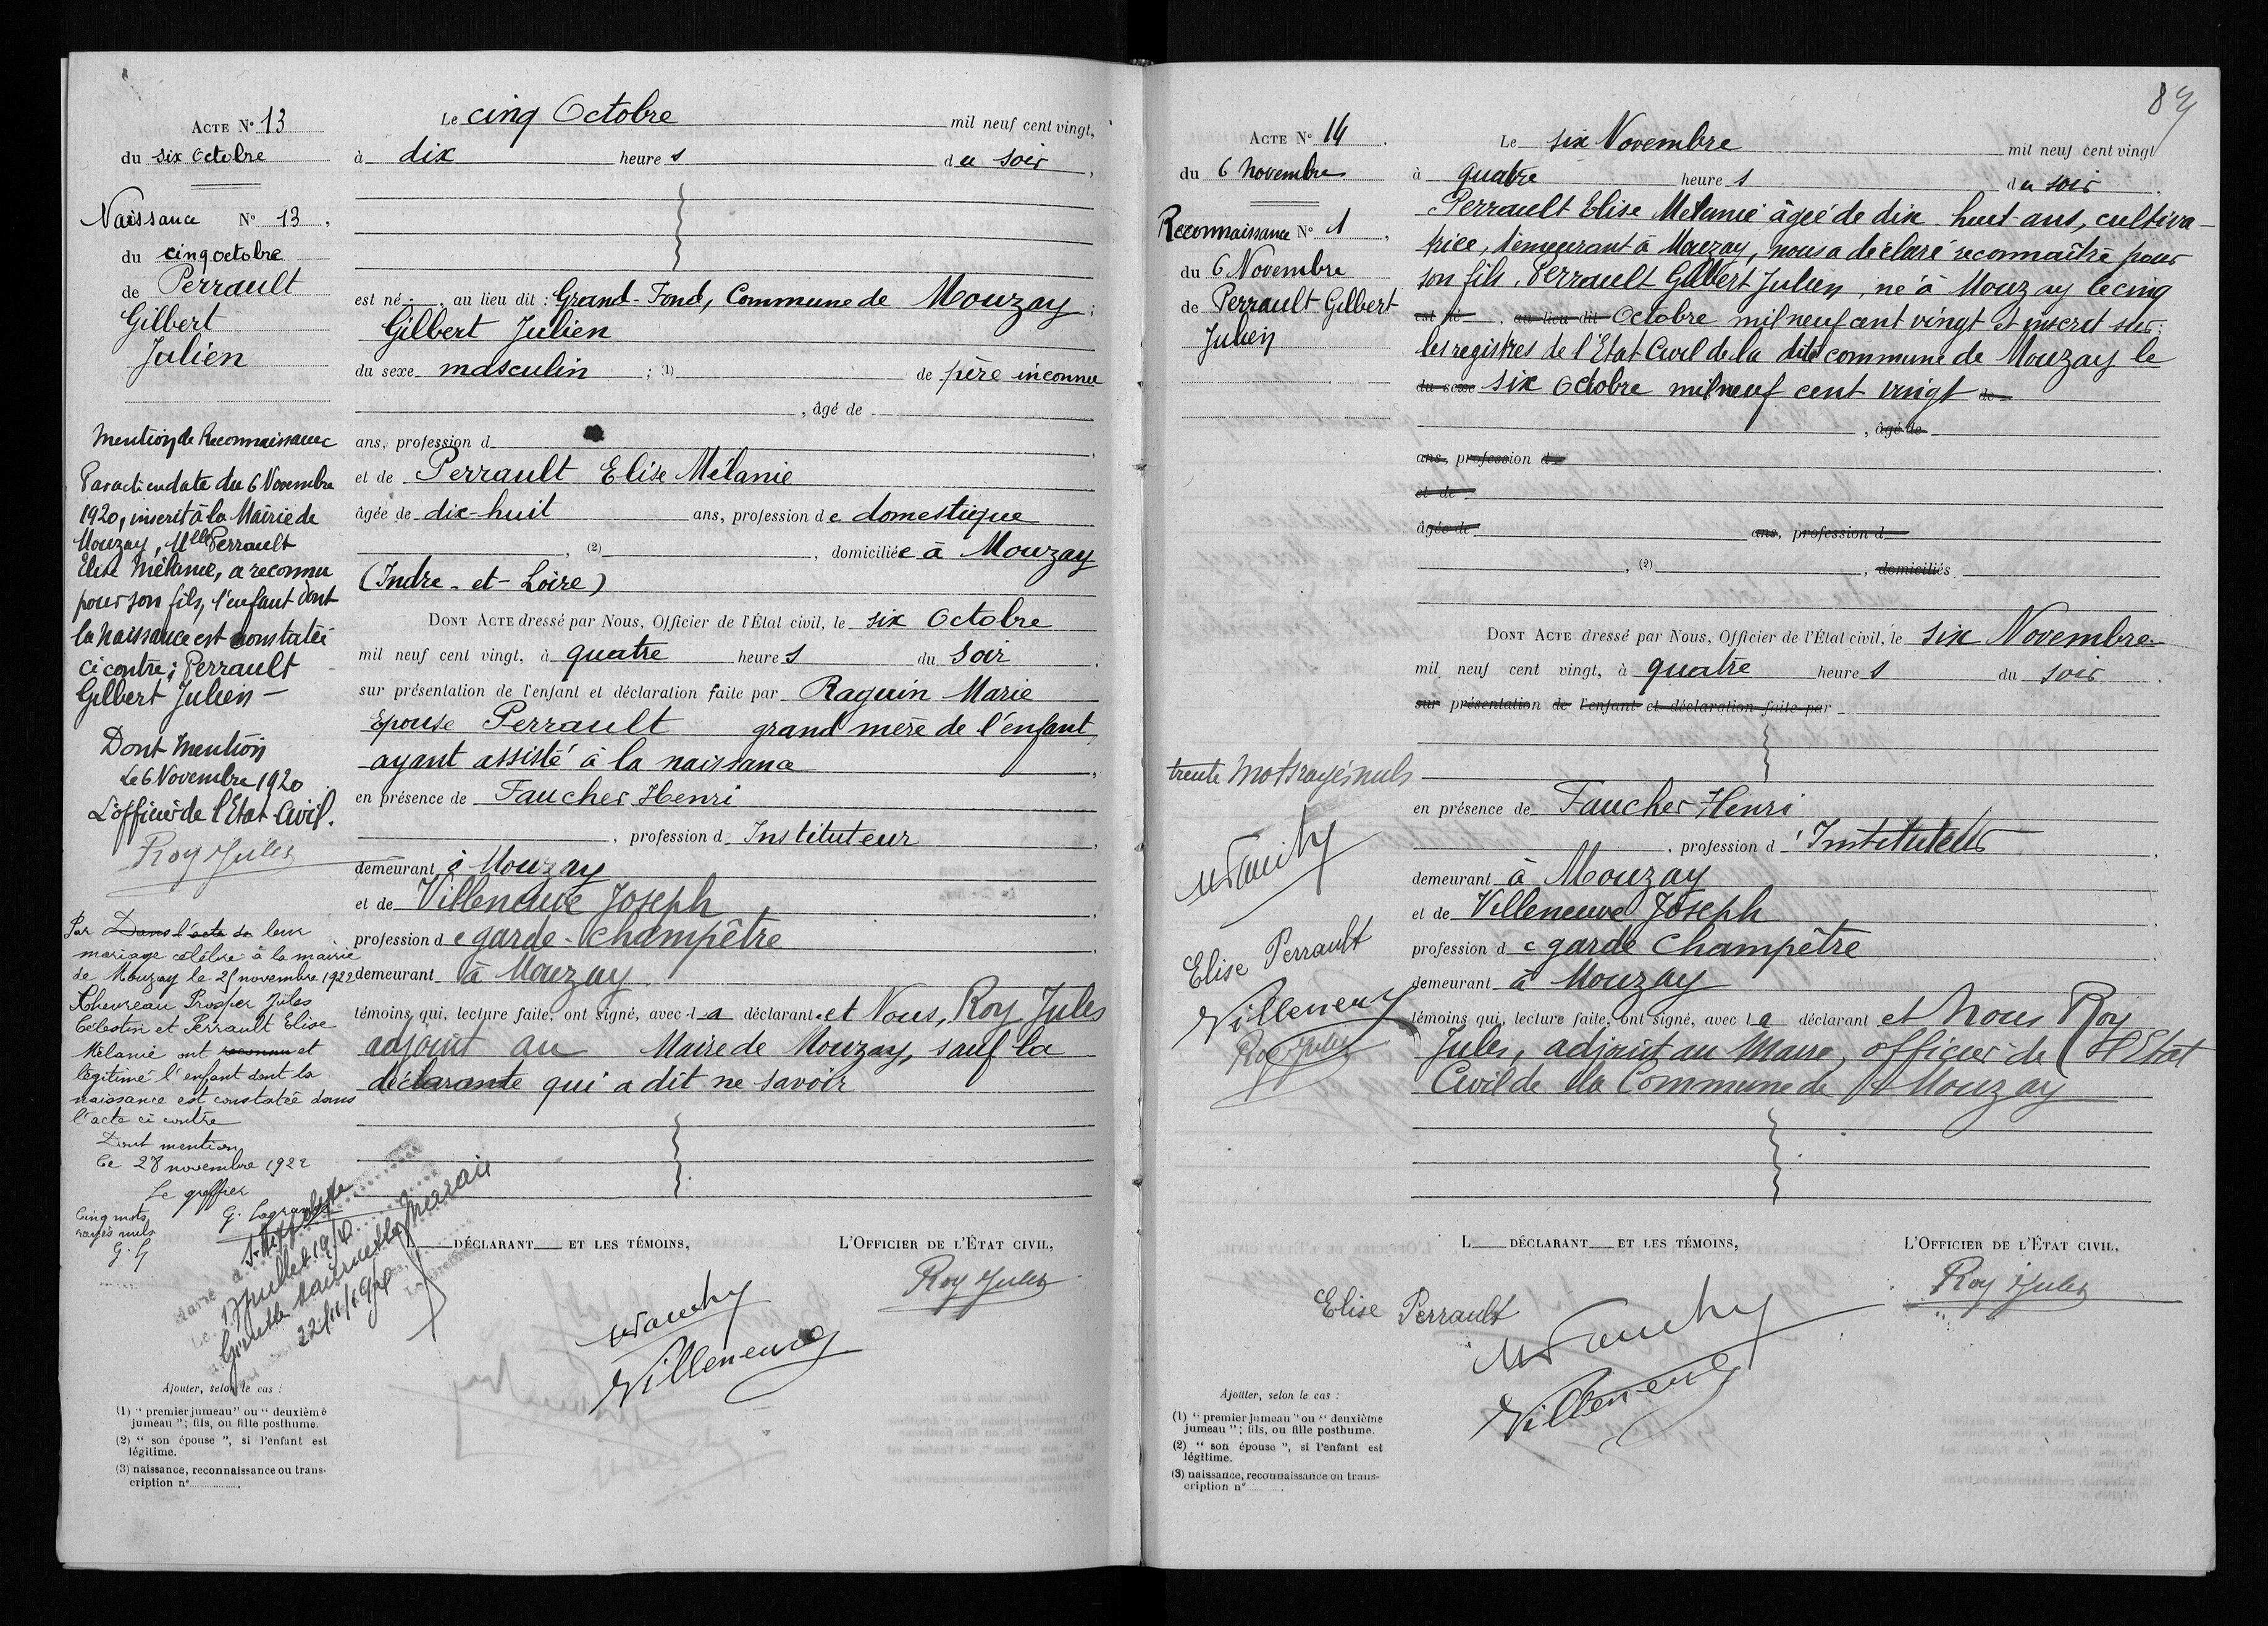 ACTE N° 13
du six Octobre
Naissance N° 13,
du cinq octobre
de Perrault
Gilbert
Julien
Mention de Reconnaissance
Par acte en date du 6 Novembre
1920, inscrit à la Mairie de
Mouzay, Mlle Perrault
Elise Mélanie, a reconnu
pour son fils, l'enfant dont
la naissance est constatée
ci contre; Perrault
Gilbert Julien —
Dont mention
Le 6 Novembre 1920
L'officier de l'Etat Civil.
Roy Jules
Par Dans l'acte de leur
mariage célébré à la mairie
de Mouzay le 25 novembre 1922
Chevreau Prosper Jules
Célestin et Perrault Elise
Mélanie ont reconnu et
légitimé l'enfant dont la
naissance est constatée dans
l'acte ci contre
Dont mention
Le 28 novembre 1922
Le greffier
G.
Cinq mots
rayés nuls
G. G
Marié à
Le Juillet
22/11/
Ajouter, selon le cas :
(1) " premier jumeau " ou " deuxième
jumeau "; fils, ou fille posthume.
(2) " son épouse ", si l'enfant est
légitime.
(3) naissance, reconnaissance ou trans-
cription n°
Le cinq Octobre mil neuf cent vingt,
à dix heures du soir,
est né, au lieu dit : Grand-Fond, Commune de Mouzay;
Gilbert Julien
du sexe masculin ; (1) de père inconnu
, âgé de
ans, profession d
et de Perrault Elise Mélanie
âgée de dix-huit ans, profession de domestique
, (2) , domiciliée à Mouzay
(Indre-et-Loire)
DONT ACTE dressé par Nous, Officier de l'État civil, le six Octobre
mil neuf cent vingt, à quatre heures du soir
sur présentation de l'enfant et déclaration faite par Raguin Marie
Epouse Perrault grand mère de l'enfant
ayant assisté à la naissance
en présence de Faucher Henri
, profession d Instituteur
demeurant à Mouzay
et de Villeneuve Joseph
profession de garde-champêtre
demeurant à Mouzay
témoins qui, lecture faite, ont signé, avec la déclarante et Nous, Roy Jules
adjoint au Maire de Mouzay, sauf la
déclarante qui a dit ne savoir
DÉCLARANT ET LES TÉMOINS,
L'OFFICIER DE L'ÉTAT CIVIL,
Roy Jules
Villeneuve
87
ACTE N° 14
du 6 Novembre
Reconnaissance N° 1,
du 6 Novembre
de Perrault Gilbert
Julien
trente mots rayés nuls
Elise Perrault
Villeneuve
Roy Jules
Ajouter, selon le cas :
(1) " premier jumeau " ou " deuxième
jumeau "; fils, ou fille posthume.
(2) " son épouse ", si l'enfant est
légitime.
(3) naissance, reconnaissance ou trans-
cription n°
Le six Novembre mil neuf cent vingt
à quatre heures du soir
Perrault Elise Mélanie âgée de dix huit ans, cultiva-
trice, demeurant à Mouzay, nous a déclaré reconnaître pour
son fils, Perrault Gilbert Julien, né à Mouzay le cinq
est né , au lieu dit Octobre mil neuf cent vingt et inscrit sur
les registres de l'Etat Civil de la dite commune de Mouzay le
du sexe six Octobre mil neuf cent vingt de
, âgé de
ans, profession d
et de
âgée de ans, profession d
, (2) , domiciliés
DONT ACTE dressé par Nous, Officier de l'État civil, le six Novembre
mil neuf cent vingt, à quatre heures du soir
sur présentation de l'enfant et déclaration faite par
en présence de Faucher Henri
, profession d'Instituteur
demeurant à Mouzay
et de Villeneuve Joseph
profession de garde champêtre
demeurant à Mouzay
témoins qui, lecture faite, ont signé, avec la déclarant et Nous Roy
Jules, adjoint au Maire, officier de l'Etat
Civil de la Commune de Mouzay
L DÉCLARANT ET LES TÉMOINS,
L'OFFICIER DE L'ÉTAT CIVIL,
Elise Perrault
Roy Jules
Villeneuve